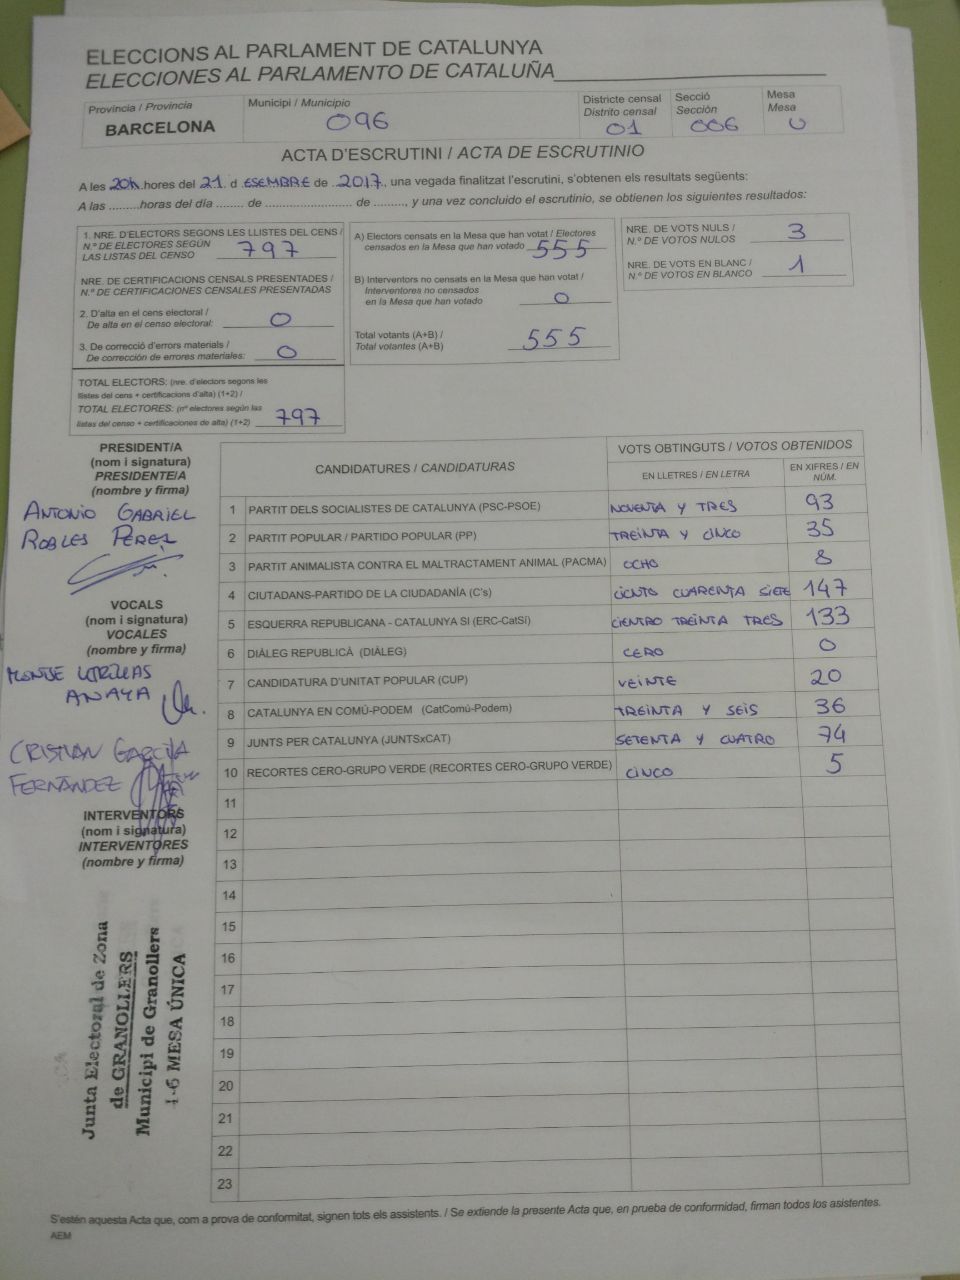 ELECCIONS AL PARLAMENT DE CATALUNYA
ELECCIONES AL PARLAMENTO DE CATALUÑA
Província / Provincia
BARCELONA
Municipi / Municipio
096
Districte censal
Distrito censal
01
Secció
Sección
006
Mesa
Mesa
U
ACTA D'ESCRUTINI / ACTA DE ESCRUTINIO
A les 20h hores del 21 d ESEMBRE de 2017, una vegada finalitzat l'escrutini, s'obtenen els resultats següents:
A las .........horas del día ........ de ......................... de ........., y una vez concluido el escrutinio, se obtienen los siguientes resultados:
1. NRE. D'ELECTORS SEGONS LES LLISTES DEL CENS /
N.º DE ELECTORES SEGÚN
LAS LISTAS DEL CENSO 797
NRE. DE CERTIFICACIONS CENSALS PRESENTADES /
N.º DE CERTIFICACIONES CENSALES PRESENTADAS
2. D'alta en el cens electoral /
De alta en el censo electoral: 0
3. De correcció d'errors materials /
De corrección de errores materiales: 0
TOTAL ELECTORS: (nre. d'electors segons les
llistes del cens + certificacions d'alta) (1+2) /
TOTAL ELECTORES: (nº electores según las
listas del censo + certificaciones de alta) (1+2) 797
A) Electors censats en la Mesa que han votat / Electores
censados en la Mesa que han votado 555
B) Interventors no censats en la Mesa que han votat /
Interventores no censados
en la Mesa que han votado 0
Total votants (A+B) /
Total votantes (A+B) 555
NRE. DE VOTS NULS /
N.º DE VOTOS NULOS 3
NRE. DE VOTS EN BLANC /
N.º DE VOTOS EN BLANCO 1
PRESIDENT/A
(nom i signatura)
PRESIDENTE/A
(nombre y firma)
ANTONIO GABRIEL
ROBLES PÉREZ
VOCALS
(nom i signatura)
VOCALES
(nombre y firma)
MONTSE
ANAYA
CRISTIAN GARCÍA
FERNÁNDEZ
INTERVENTORS
(nom i signatura)
INTERVENTORES
(nombre y firma)
Junta Electoral de Zona
de GRANOLLERS
Municipi de Granollers
1-6 MESA ÚNICA
CANDIDATURES / CANDIDATURAS
VOTS OBTINGUTS / VOTOS OBTENIDOS
EN LLETRES / EN LETRA
EN XIFRES / EN
NÚM.
1 PARTIT DELS SOCIALISTES DE CATALUNYA (PSC-PSOE) NOVENTA Y TRES 93
2 PARTIT POPULAR / PARTIDO POPULAR (PP) TREINTA Y CINCO 35
3 PARTIT ANIMALISTA CONTRA EL MALTRACTAMENT ANIMAL (PACMA) OCHO 8
4 CIUTADANS-PARTIDO DE LA CIUDADANÍA (C's) CIENTO CUARENTA SIETE 147
5 ESQUERRA REPUBLICANA - CATALUNYA SÍ (ERC-CatSí) CIENTRO TREINTA TRES 133
6 DIÀLEG REPUBLICÀ (DIÀLEG) CERO 0
7 CANDIDATURA D'UNITAT POPULAR (CUP) VEINTE 20
8 CATALUNYA EN COMÚ-PODEM (CatComú-Podem) TREINTA Y SEIS 36
9 JUNTS PER CATALUNYA (JUNTSxCAT) SETENTA Y CUATRO 74
10 RECORTES CERO-GRUPO VERDE (RECORTES CERO-GRUPO VERDE) CINCO 5
11
12
13
14
15
16
17
18
19
20
21
22
23
S'estén aquesta Acta que, com a prova de conformitat, signen tots els assistents. / Se extiende la presente Acta que, en prueba de conformidad, firman todos los asistentes.
AEM